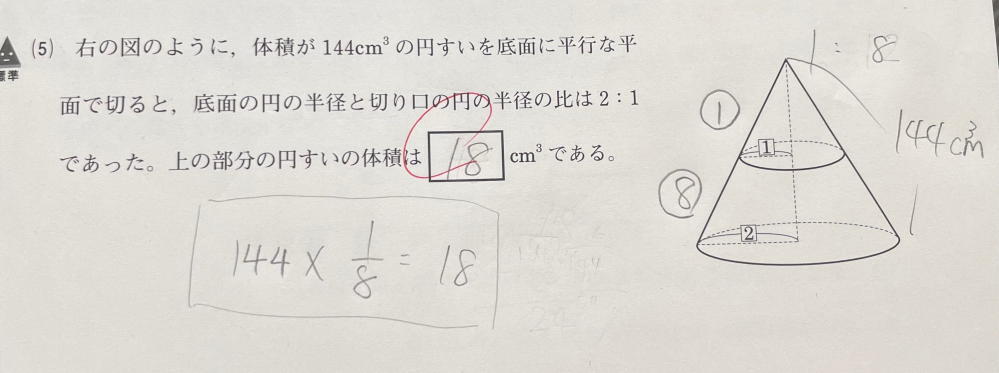 (5) 右の図のように，体積が144cm³の円すいを底面に平行な平
標準
面で切ると，底面の円の半径と切り口の円の半径の比は2：1
であった。上の部分の円すいの体積は 18 cm³である。
144 × 1/8 = 18
1 : 8
①
144cm³
1
⑧
2